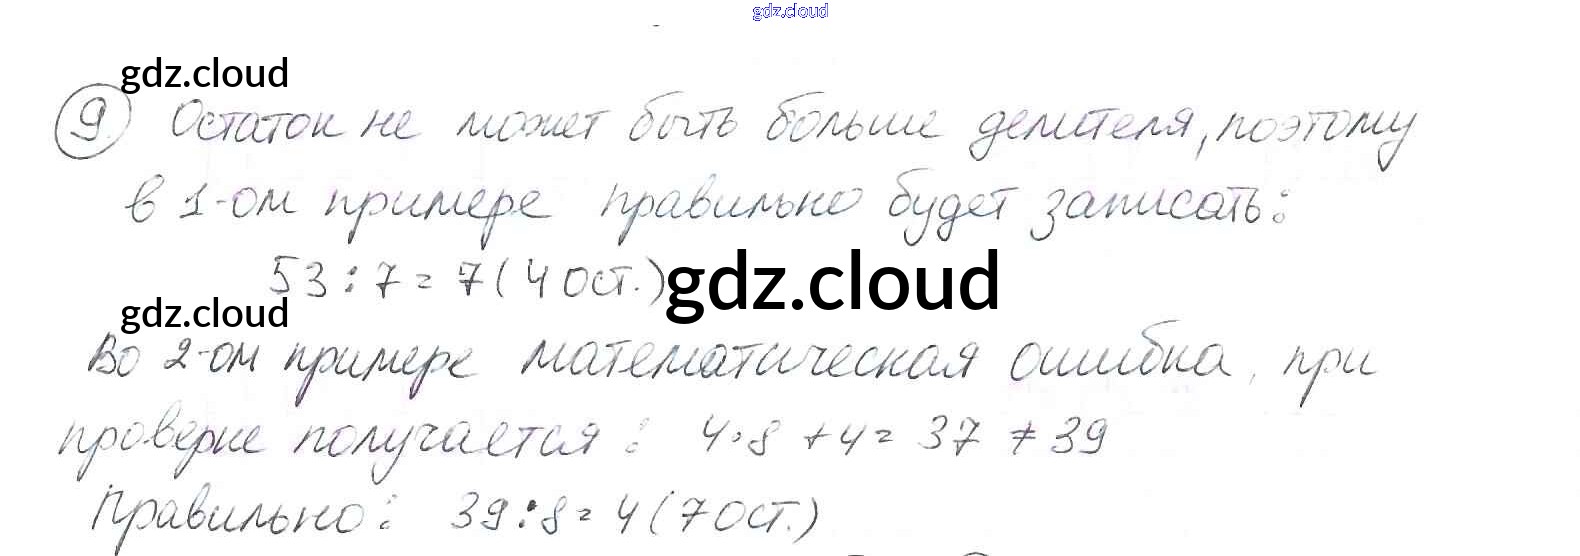 gdz.cloud
gdz.cloud
9. Остаток не может быть больше делителя, поэтому
в 1-ом примере правильно будет записать:
53:7=7(4 ост.)
gdz.cloud
gdz.cloud
Во 2-ом примере математическая ошибка, при
проверке получается: 4·8+4=37≠39
Правильно: 39:8=4(7 ост.)